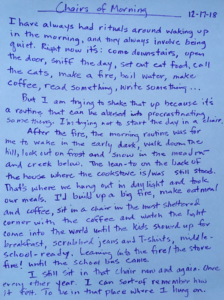 Chairs of Morning
12-17-18
I have always had rituals around waking up
in the morning, and they always involve being
quiet. Right now it's: come downstairs, open
the door, sniff the day, set out cat food, call
the cats, make a fire, boil water, make
coffee, read something, write something...
But I am trying to shake that up because it's
a routine that can be alexed into procrastinating
something. I'm trying not to start the day in a chair.
After the fire, the morning routine was for
me to wake in the early dark, walk down the
hill, look out on frost and snow in the meadow
and creek below. The lean-to on the back of
the house where the cookstove is/was still stood.
That's where we hung out in daylight and took
our meals. I'd build up a big fire, make oatmeal
and coffee, sit in a chair in the most sheltered
corner with the coffee and watch the light
come into the world until the kids showed up for
breakfast, scrubbed jeans and T-shirts, made
school-ready. Leaning into the fire/the stove
fire/ until the school bus came.
I still sit in that chair now and again. Once
every other year. I can sort-of remember how
it felt. To be in that place where I hung on.